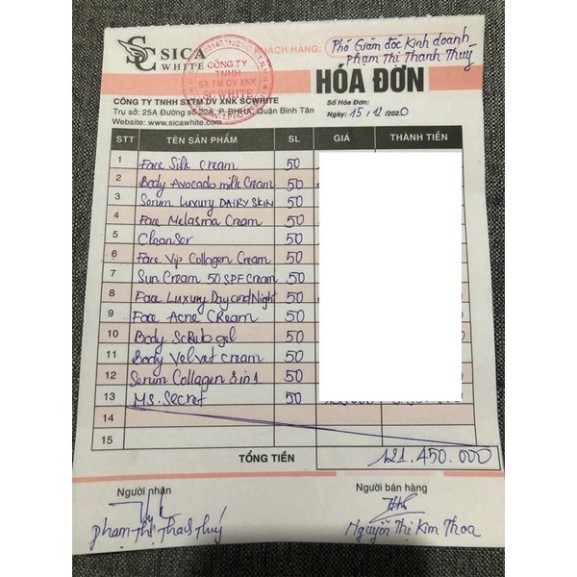 SC SICA WHITE
KHÁCH HÀNG: Phó Giám đốc Kinh doanh
Phạm Thị Thanh Thuý
CÔNG TY
TNHH
SX TM DV XNK
SCWHITE
HÓA ĐƠN
CÔNG TY TNHH SXTM DV XNK SCWHITE
Số Hóa Đơn:
Trụ sở: 25A Đường số 22A, P. BHHA, Quận Bình Tân
Ngày: 15/12/2020
Website: www.sicawhite.com
STT TÊN SẢN PHẨM SL GIÁ THÀNH TIỀN
1 Face Silk Cream 50
2 Body Avocado milk Cream 50
3 Serum Luxury DAIRY SKIN 50
4 Face Melasma Cream 50
5 Cleanser 50
6 Face Vip Collagen Cream 50
7 Sun Cream 50 SPF Cream 50
8 Face Luxury Day and Night 50
9 Face Acne CReam 50
10 Body ScRub gel 50
11 Body Velvet cream 50
12 Serum Collagen 3 in 1 50
13 MS. Secret 50
14
15
TỔNG TIỀN 121.450.000
Người nhận Người bán hàng
Phạm Thị Thanh Thuý Nguyễn Thị Kim Thoa